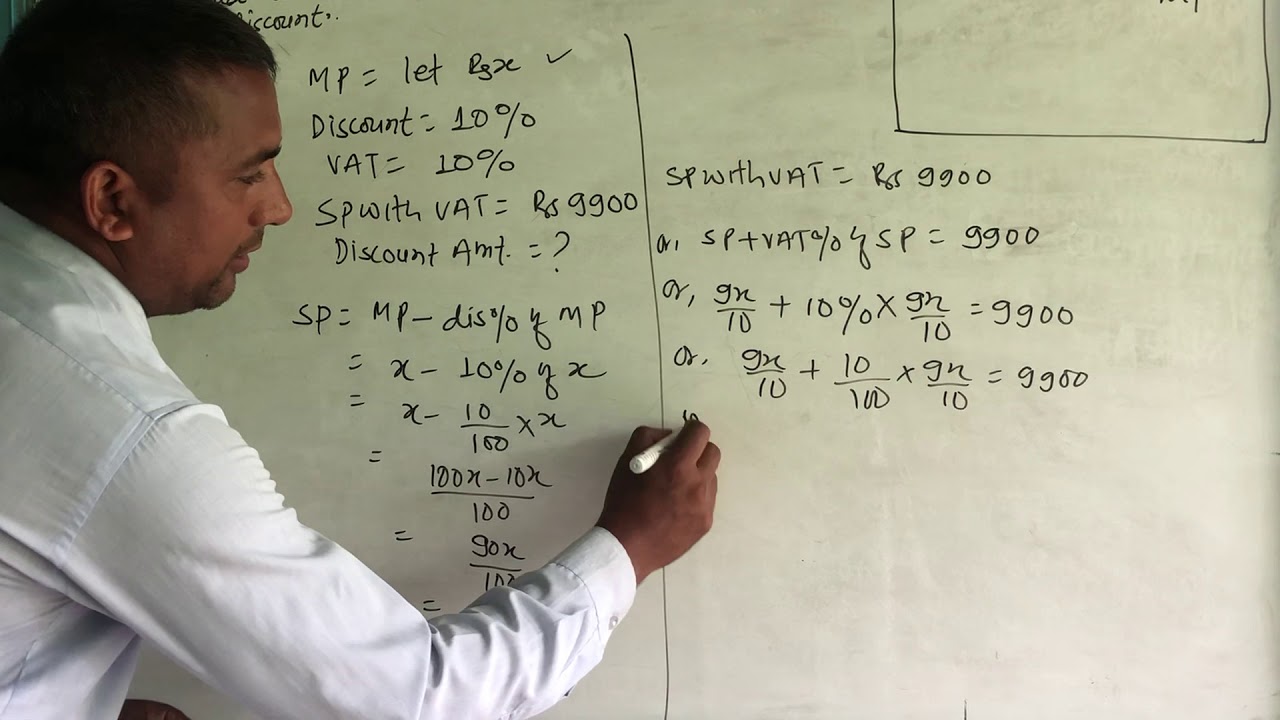 Discount..
MP = let Rs x ✓
Discount = 10%
VAT = 10%
SP with VAT = Rs 9900
Discount Amt. = ?
SP = MP - dis% of MP
= x - 10% of x
= x - 10/100 × x
= 100x - 10x/100
= 90x/100
=
SP with VAT = Rs 9900
or, SP + VAT% of SP = 9900
or, 9x/10 + 10% × 9x/10 = 9900
or, 9x/10 + 10/100 × 9x/10 = 9900